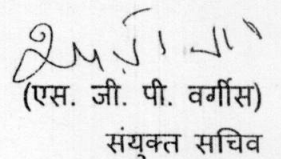 (एस. जी. पी. वर्गीस)
संयुक्त सचिव